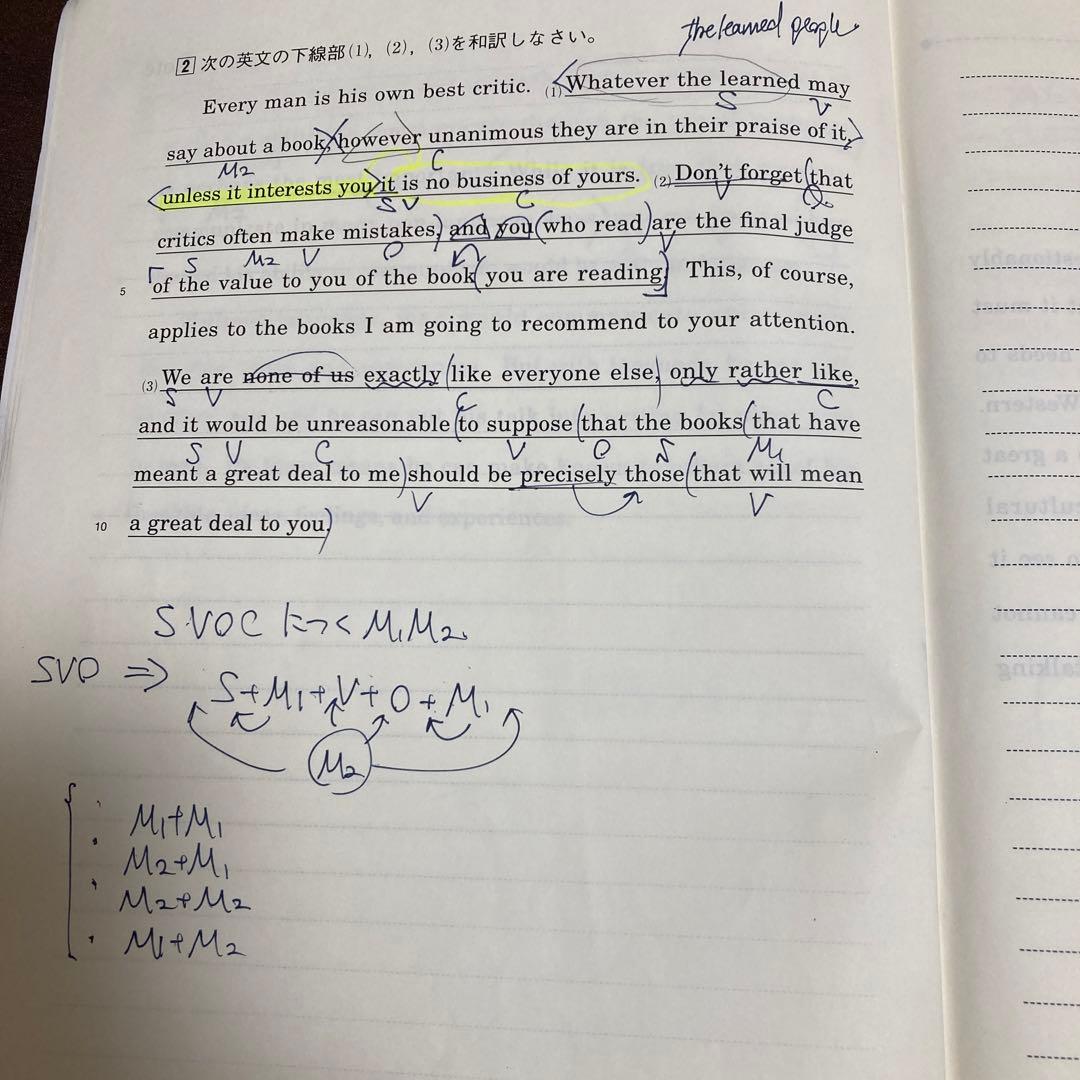 the learned people
2 次の英文の下線部(1), (2), (3)を和訳しなさい。
Every man is his own best critic. (1)Whatever the learned may
S V
say about a book, however unanimous they are in their praise of it,
M2 C
unless it interests you, it is no business of yours. (2)Don't forget that
S V C V O
critics often make mistakes, and you who read are the final judge
S M2 V O V
5 of the value to you of the book you are reading. This, of course,
applies to the books I am going to recommend to your attention.
(3)We are none of us exactly like everyone else, only rather like,
S V C C
and it would be unreasonable to suppose that the books that have
S V C V O S M1
meant a great deal to me should be precisely those that will mean
V V
10 a great deal to you.
SVOC につく M1M2
SVO ⇒ S+M1+V+O+M1
M2
M1+M1
M2+M1
M2+M2
M1+M2